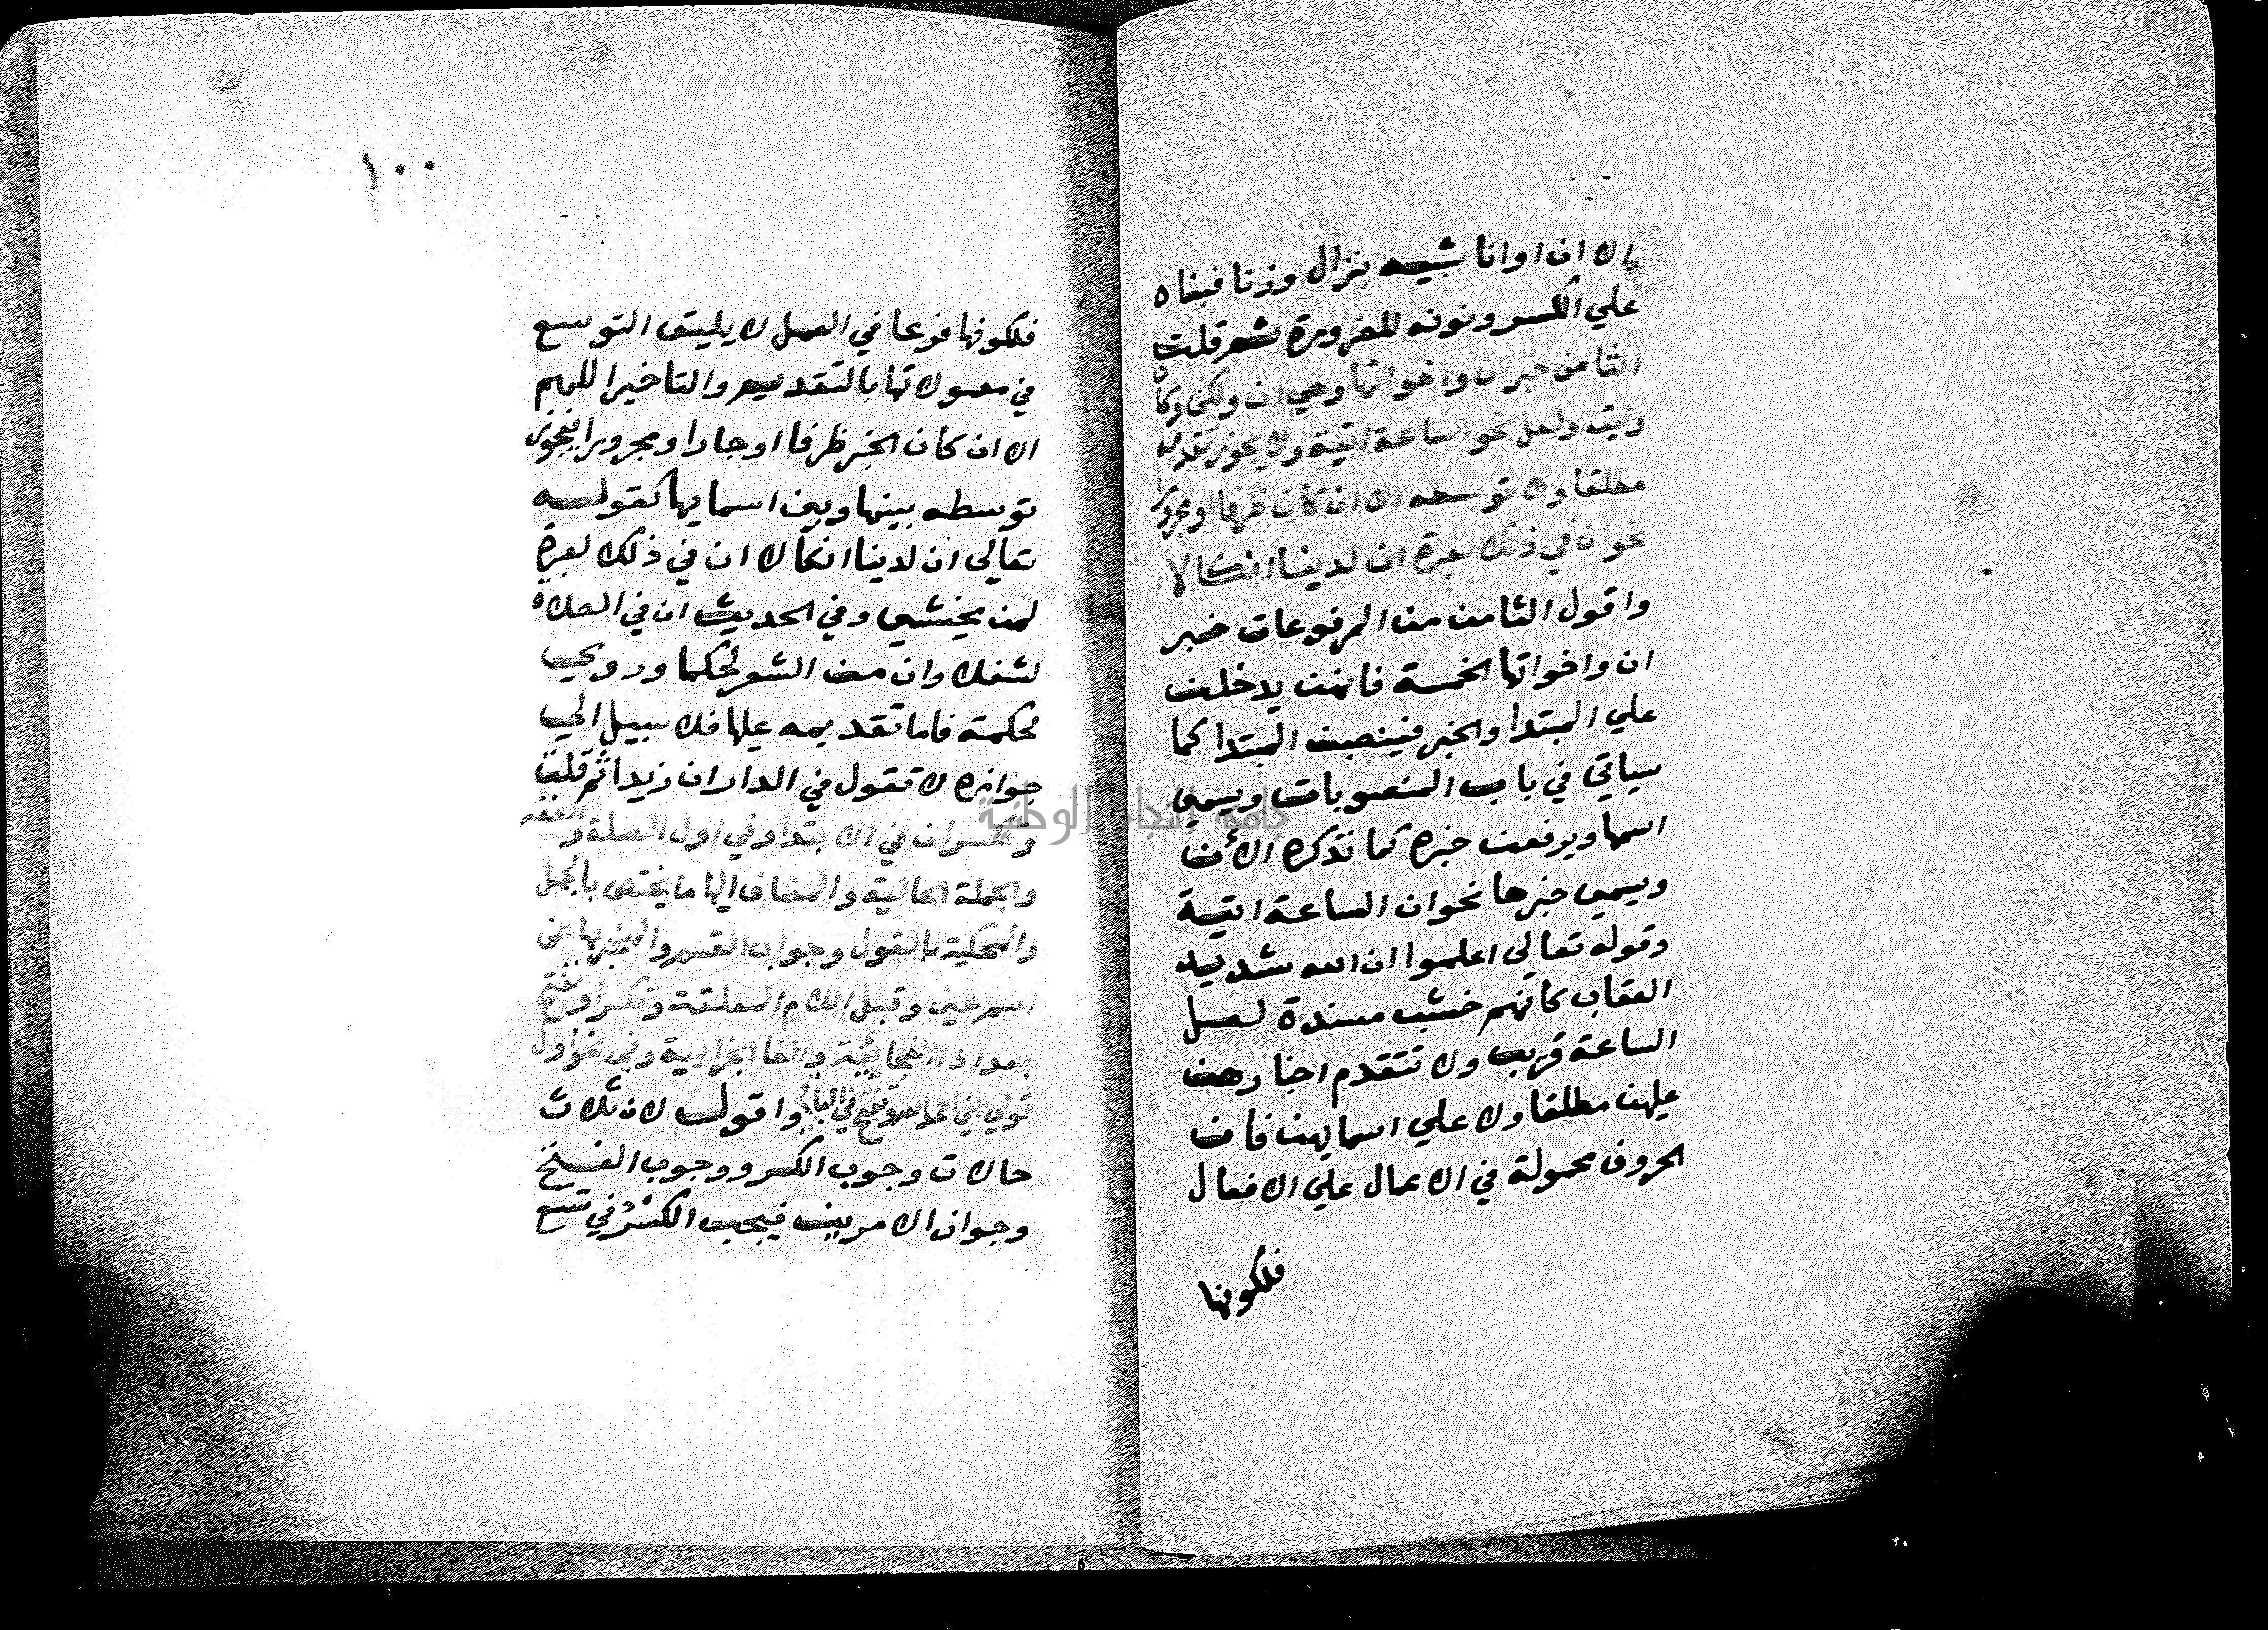 الا ان اوانا شبيه بنزال وزنا فبناه
علي الكسر ونونه للضرورة ثم قلت
الثامن خبر ان واخواتها وهي ان ولكن وكان
وليت ولعل نحو الساعة اتية ولا يجوز تقديمه
مطلقا ولا توسطه الا ان كان ظرفا او مجرورا
نحو ان في ذلك لعبرة ان لدينا انكالا
واقول الثامن من المرفوعات خبر
ان واخواتها الخمسة فانهن يدخلن
علي المبتدا والخبر فينصبن المبتدا كما
سياتي في باب المنصوبات ويسمي
اسمها ويرفعن خبره كما نذكره الأن
ويسمي خبرها نحو ان الساعة اتية
وقوله تعالي اعلموا ان الله شديد
العقاب كانهم خشب مسندة لعل
الساعة قريب ولا تتقدم اخبارهن
عليهن مطلقا ولا علي اسمايهن فان
الحروف محمولة في الاعمال علي الافعال
فلكونها
١٠٠
فلكونها فرعا في العمل لا يليق التوسع
في معمولاتها بالتقديم والتاخير اللهم
الا ان كان الخبر ظرفا او جارا ومجرورا فيجوز
توسطه بينها وبين اسمايها كقوله
تعالي ان لدينا انكالا ان في ذلك لعبرة
لمن يخشي وفي الحديث ان في الصلاة
لشغلا وان من الشعر لحكما وروي
لحكمة فاما تقديمه عليها فلا سبيل الي
جوازه لا تقول في الدار ان زيدا ثم قلت
وتكسر ان في الابتدا وفي اول الصلة والصفة
والجملة الحالية والمضاف اليها ما يختص بالجمل
والمحكية بالقول وجواب القسم والمخبر بها عن
اسم عين وقبل اللام المعلقة وتكسر او تفتح
بعد اذا الفجايية والفا الجزايية وفي نحو اول
قولي اني احمد الله وتفتح في الباقي واقول لان ثلاث
حالات وجوب الكسر ووجوب الفتح
وجواز الامرين فيجب الكسر في تسع
جامعة النجاح الوطنية